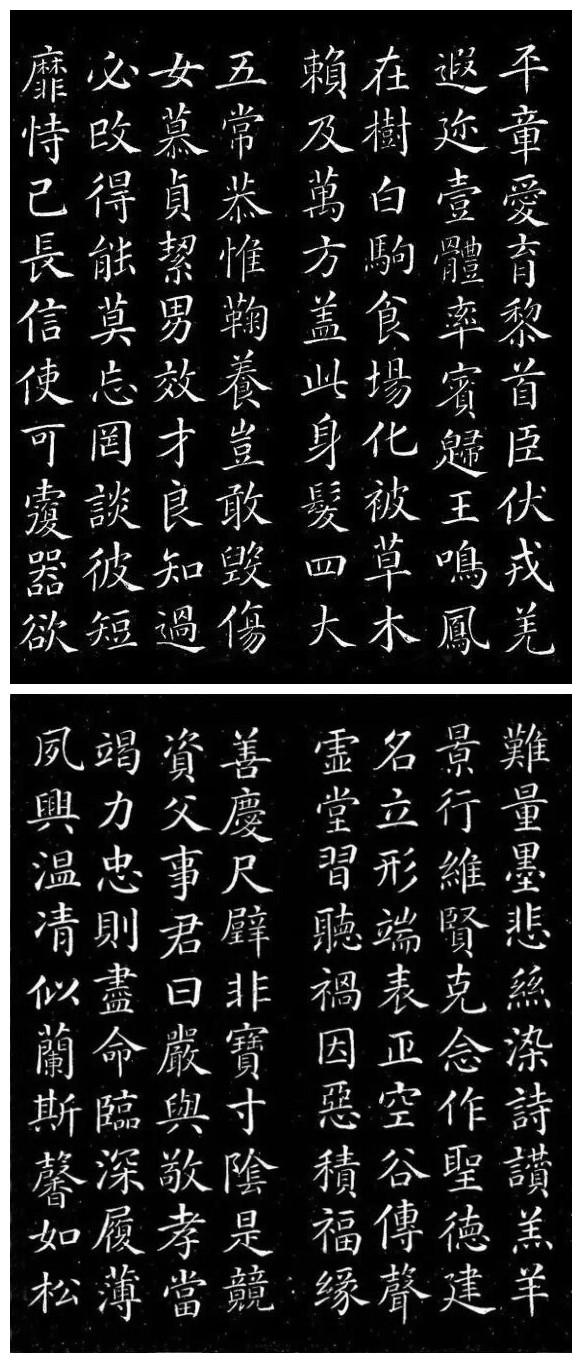 平章愛育黎首臣伏戎羌
遐迩壹體率賓歸王鳴鳳
在樹白駒食場化被草木
賴及萬方盖此身髮四大
五常恭惟鞠養豈敢毀傷
女慕貞絜男效才良知過
必改得能莫忘罔談彼短
靡恃己長信使可覆器欲
難量墨悲絲染詩讃羔羊
景行維賢克念作聖德建
名立形端表正空谷傳聲
虛堂習聽禍因惡積福緣
善慶尺璧非寶寸陰是競
資父事君曰嚴與敬孝當
竭力忠則盡命臨深履薄
夙興温凊似蘭斯馨如松